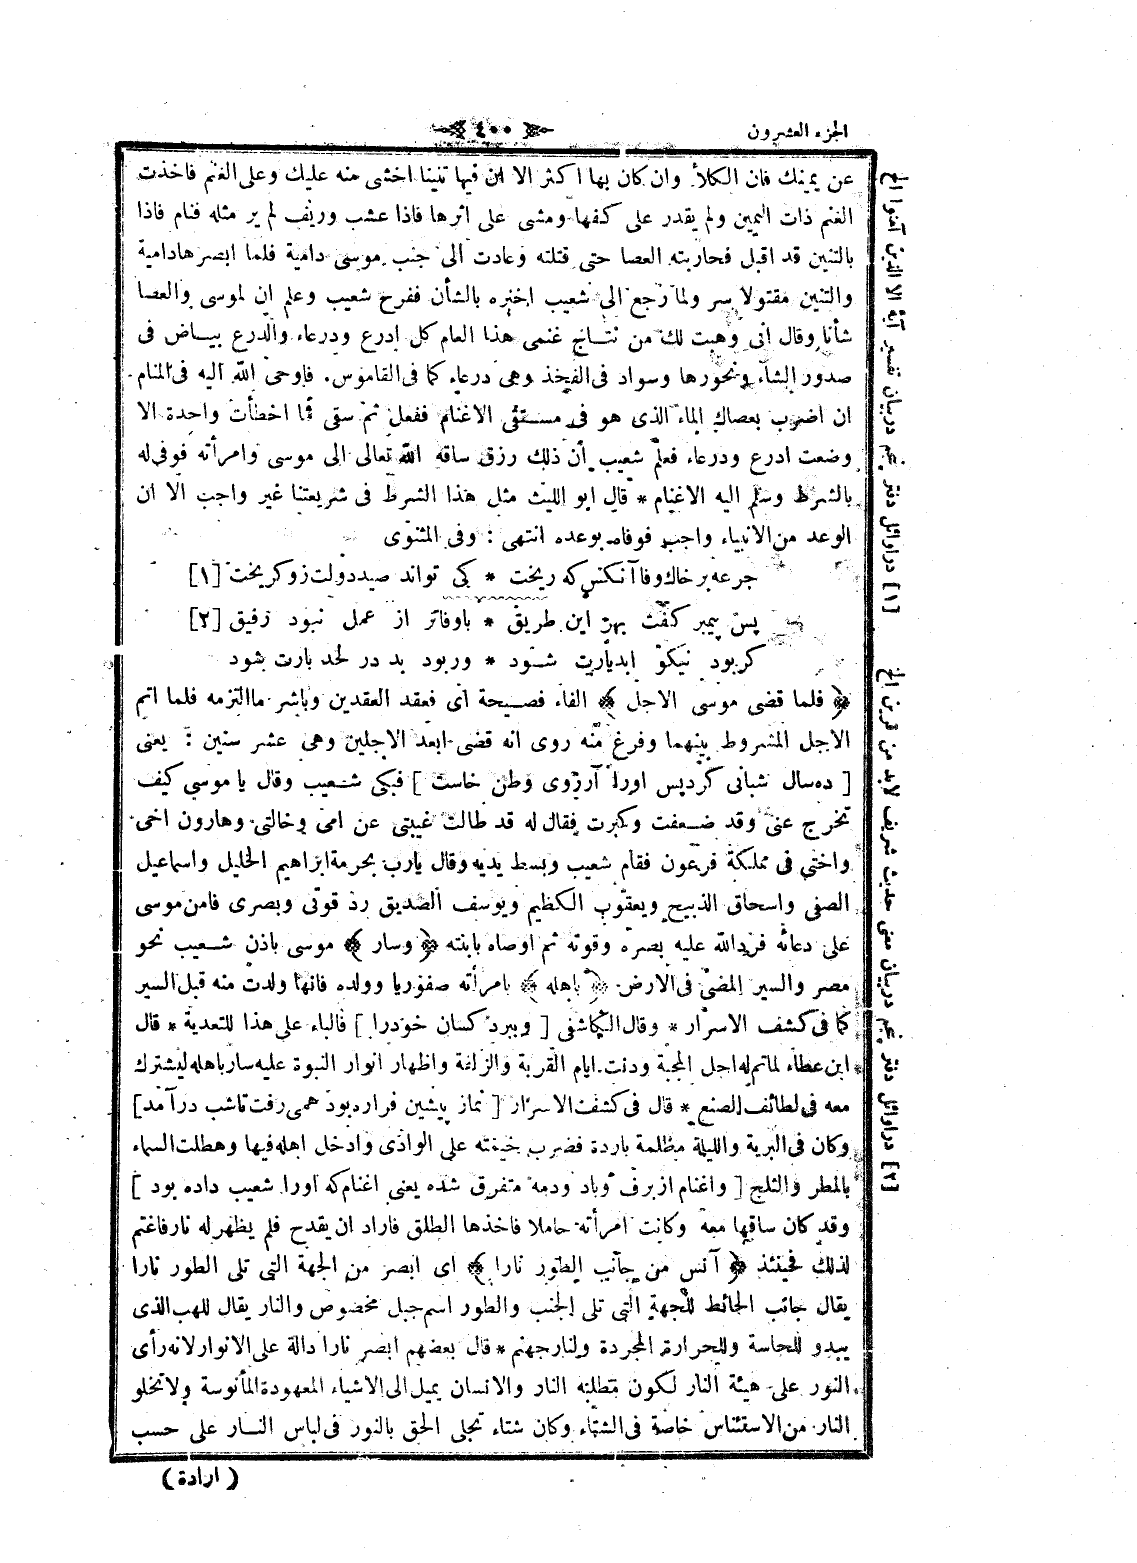 الجزء العشرون
٤٠٠
عن يمينك فان الكلأ وان كان بها اكثر الا ان فيها تنينا اخشى منه عليك وعلى الغنم فاخذت
الغنم ذات اليمين ولم يقدر على كفها ومشى على اثرها فاذا عشب وريف لم ير مثله فنام فاذا
بالتنين قد اقبل فحاربته العصا حتى قتلته وعادت الى جنب موسى دامية فلما ابصرها دامية
والتنين مقتولا سر ولما رجع الى شعيب اخبره بالشأن ففرح شعيب وعلم ان لموسى والعصا
شأنا وقال انى وهبت لك من نتاج غنمى هذا العام كل ادرع ودرعاء والدرع بياض فى
صدور الشاء ونحورها وسواد فى الفخذ وهى درعاء كما فى القاموس. فاوحى الله اليه فى المنام
ان اضرب بعصاك الماء الذى هو فى مستقى الاغنام ففعل ثم سقى فما اخطأت واحدة الا
وضعت ادرع ودرعاء فعلم شعيب أن ذلك رزق ساقه الله تعالى الى موسى وامرأته فوفى له
بالشرط وسلم اليه الاغنام * قال ابو الليث مثل هذا الشرط فى شريعتنا غير واجب الا ان
الوعد من الانبياء واجب فوفاه بوعده انتهى : وفى المثنوى
جرعه برخاك وفا آنكس كه ريخت * كى تواند صيد دولت زو كريخت [١]
پس پيمبر كفت بهر اين طريق * باوفاتر از عمل نبود رفيق [٢]
كربود نيكو ابديارت شود * وربود بد در لحد بارت شود
﴿ فلما قضى موسى الاجل ﴾ الفاء فصيحة اى فعقد العقدين وباشر ما التزمه فلما اتم
الاجل المشروط بينهما وفرغ منه روى انه قضى ابعد الاجلين وهى عشر سنين : يعنى
[ ده سال شبانى كرد پس اورا آرزوى وطن خاست ] فبكى شعيب وقال يا موسى كيف
تخرج عنى وقد ضعفت وكبرت فقال له قد طالت غيبتى عن امى وخالتى وهارون اخى
واختى فى مملكة فرعون فقام شعيب وبسط يديه وقال يارب بحرمة ابراهيم الخليل واسماعيل
الصفى واسحاق الذبيح ويعقوب الكظيم ويوسف الصديق رد قوتى وبصرى فامن موسى
على دعائه فرد الله عليه بصره وقوته ثم اوصاه بابنته ﴿ وسار ﴾ موسى باذن شعيب نحو
مصر والسير المضى فى الارض ﴿ باهله ﴾ بامرأته صفوريا وولده فانها ولدت منه قبل السير
كما فى كشف الاسرار * وقال الكاشفى [ وببرد كسان خودرا ] فالباء على هذا للتعدية * قال
ابن عطاء لماتم له اجل المحبة ودنت ايام القربة والزلفة واظهار انوار النبوة عليه سار باهله ليشترك
معه فى لطائف الصنع * قال فى كشف الاسرار [ نماز پيشين فراره بود همى رفت تاشب درآمد]
وكان فى البرية والليلة مظلمة باردة فضرب خيمته على الوادى وادخل اهله فيها وهطلت السماء
بالمطر والثلج [ واغنام از برف وباد ودمه متفرق شده يعنى اغنام كه اورا شعيب داده بود ]
وقد كان ساقها معه وكانت امرأته حاملا فاخذها الطلق فاراد ان يقدح فلم يظهر له نار فاغتم
لذلك فحينئذ ﴿ آنس من جانب الطور نارا ﴾ اى ابصر من الجهة التى تلى الطور نارا
يقال جانب الحائط للجهة التى تلى الجنب والطور اسم جبل مخصوص والنار يقال للهب الذى
يبدو للحاسة وللحرارة المجردة ولنار جهنم * قال بعضهم ابصر نارا دالة على الانوار لانه رأى
النور على هيئة النار لكون مطلبه النار والانسان يميل الى الاشياء المعهودة المأنوسة ولا تخلو
النار من الاستئناس خاصة فى الشتاء وكان شتاء تجلى الحق بالنور فى لباس النار على حسب
( ارادة )
[١] دراوائل دفتر پنجم دربيان تفسير آية الا الذين آمنوا الخ
[٢] دراوائل دفتر پنجم دربيان معنى حديث شريف لابد من قرين الخ